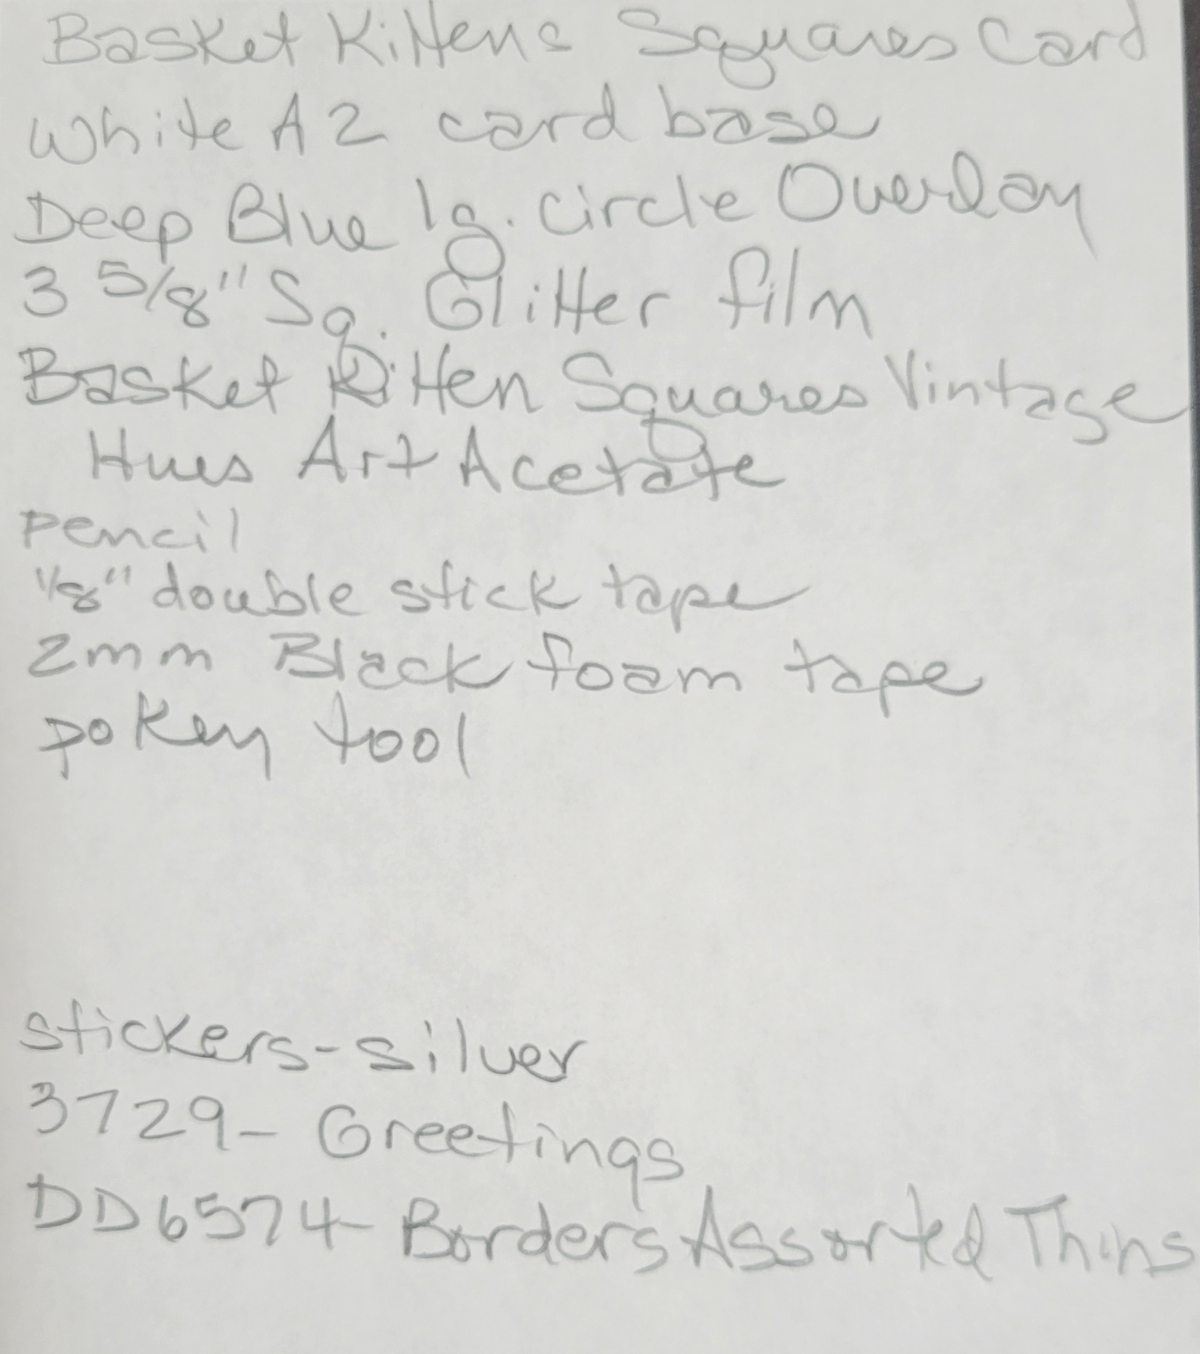 Basket Kittens Squares Card
White A2 card base
Deep Blue lg. circle Overlay
3 5/8" Sq. Glitter film
Basket Kitten Squares Vintage
Hues Art Acetate
pencil
1/8" double stick tape
2mm Black foam tape
pokey tool
stickers-silver
3729- Greetings
DD6574- Borders Assorted Thins